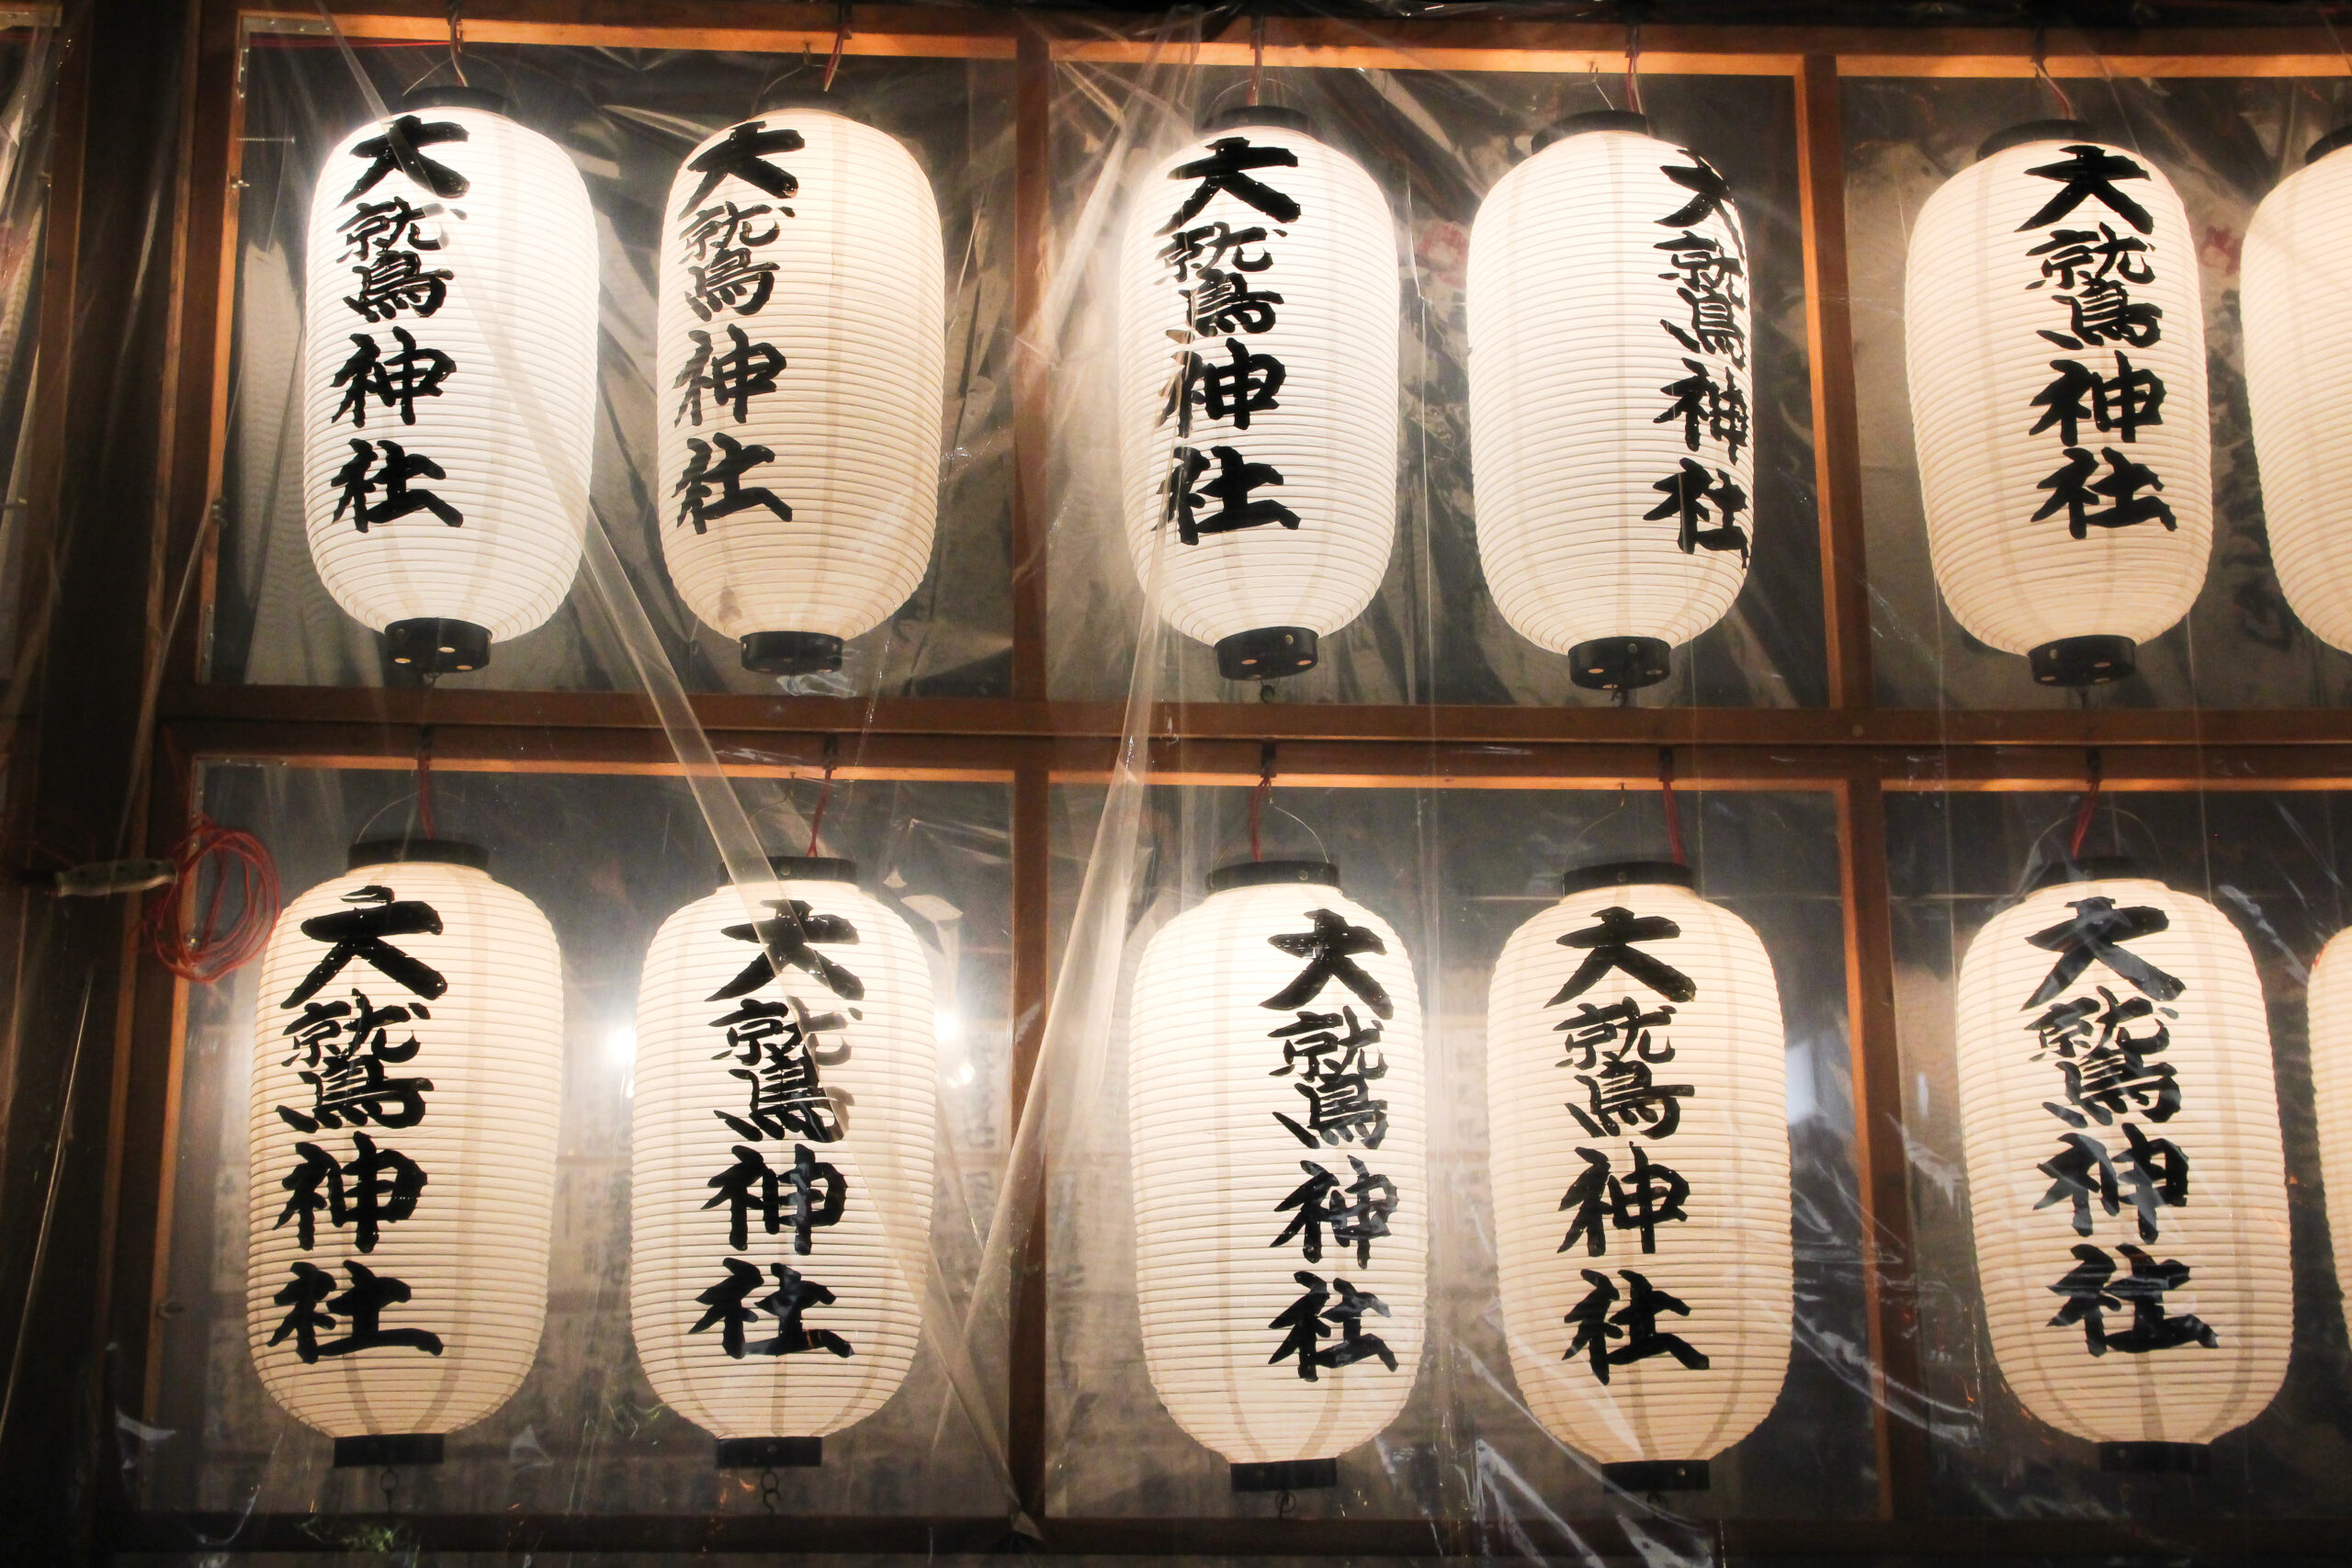 大鷲神社
大鷲神社
大鷲神社
大鷲神社
大鷲神社
大鷲神社
大鷲神社
大鷲神社
大鷲神社
大鷲神社